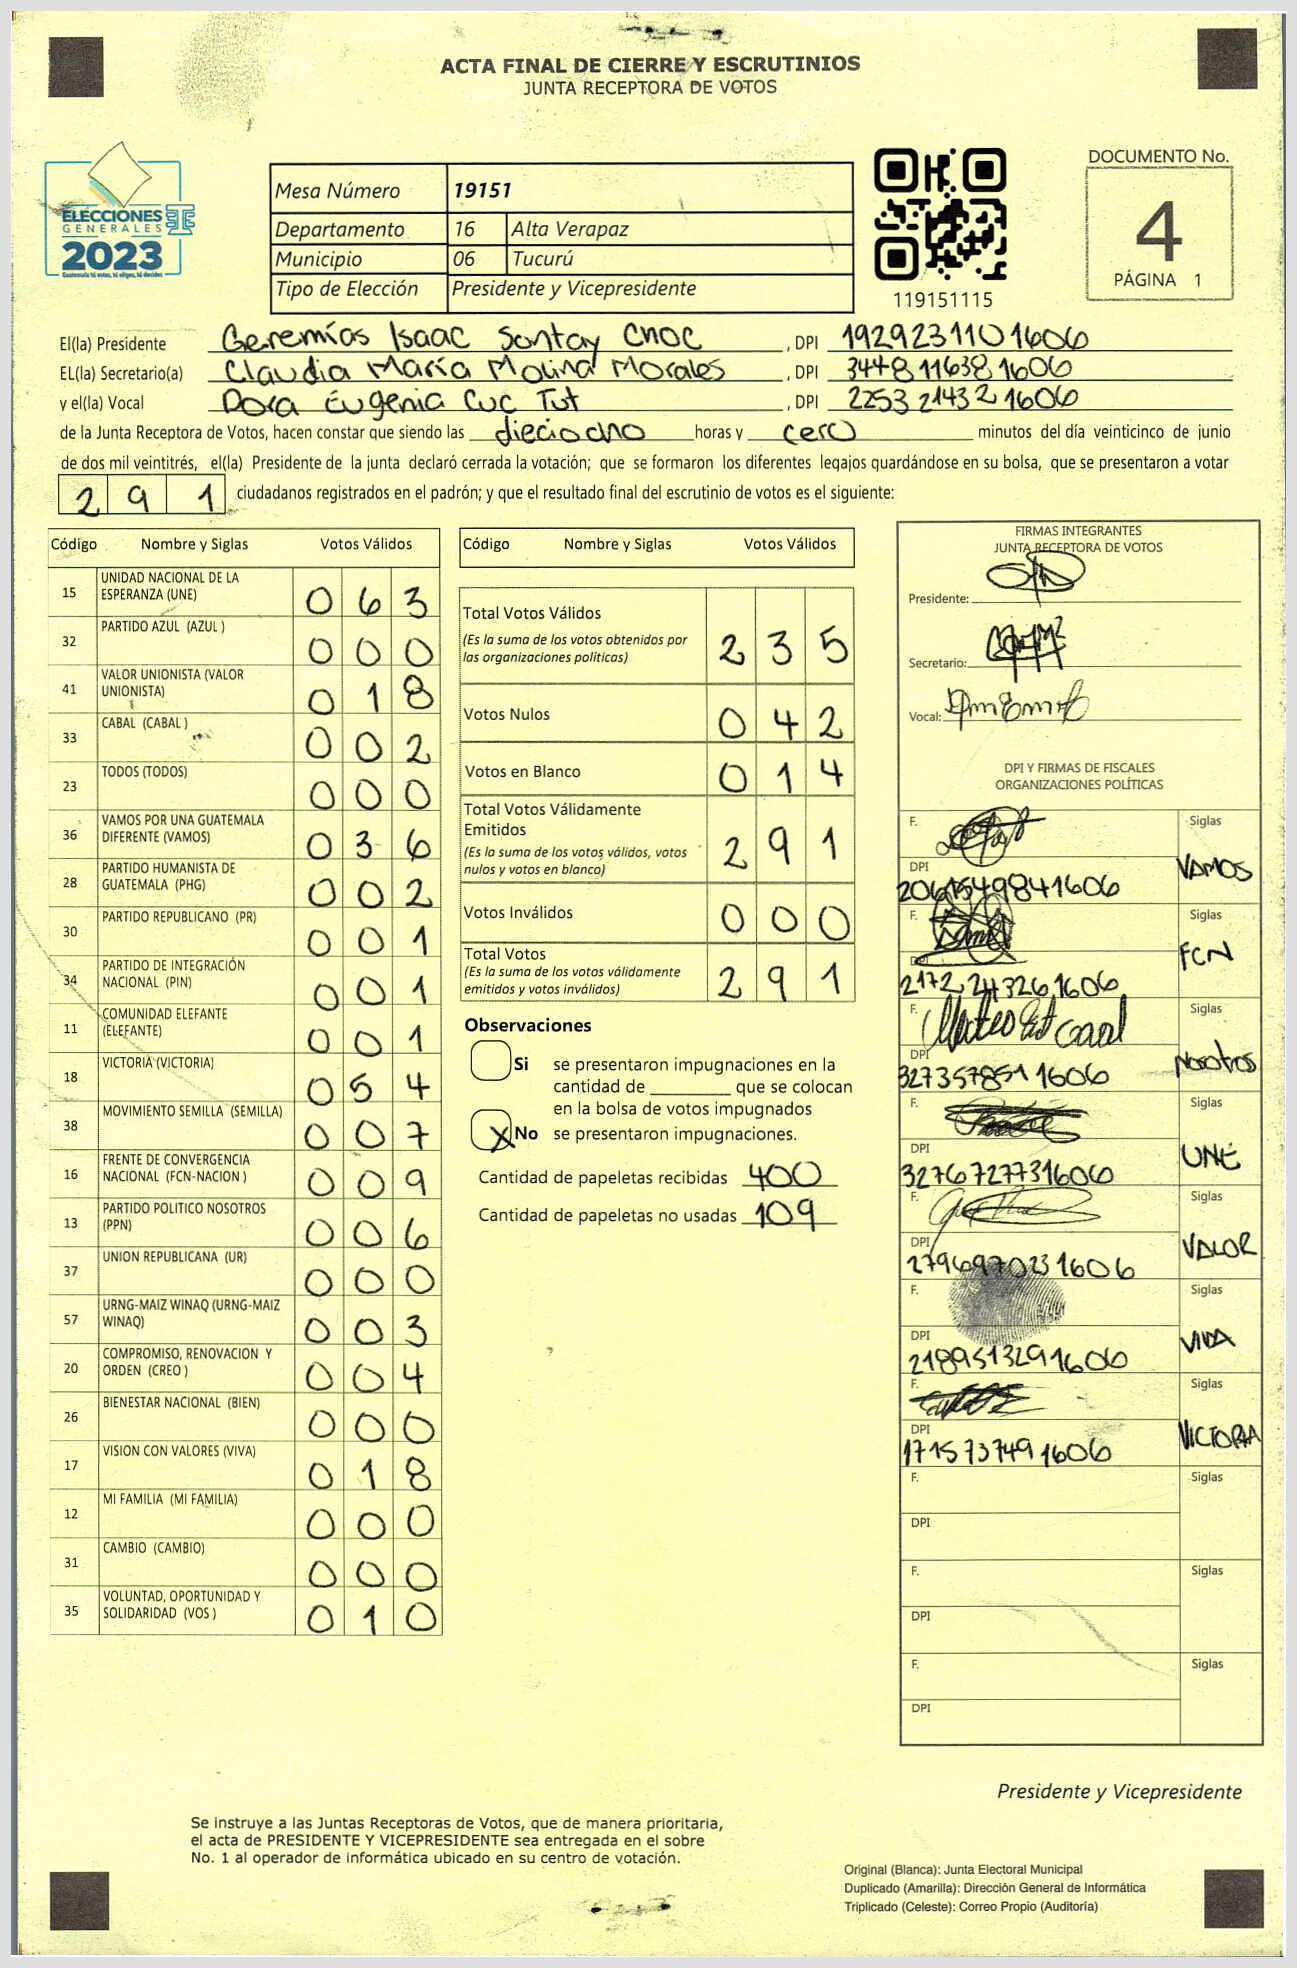 ACTA FINAL DE CIERRE Y ESCRUTINIOS
JUNTA RECEPTORA DE VOTOS
ELECCIONES
GENERALES
2023
Guatemala tú votas, tú eliges, tú decides
Mesa Número 19151
Departamento 16 Alta Verapaz
Municipio 06 Tucurú
Tipo de Elección Presidente y Vicepresidente
119151115
DOCUMENTO No.
4
PÁGINA 1
El(la) Presidente Geremías Isaac Santay Choc, DPI 1929231101606
EL(la) Secretario(a) Claudia María Molina Morales, DPI 3448116381606
y el(la) Vocal Dora Eugenia Cuc Tut, DPI 2253214321606
de la Junta Receptora de Votos, hacen constar que siendo las dieciocho horas y cero minutos del día veinticinco de junio
de dos mil veintitrés, el(la) Presidente de la junta declaró cerrada la votación; que se formaron los diferentes legajos guardándose en su bolsa, que se presentaron a votar
2 9 1 ciudadanos registrados en el padrón; y que el resultado final del escrutinio de votos es el siguiente:
Código Nombre y Siglas Votos Válidos
15 UNIDAD NACIONAL DE LA
ESPERANZA (UNE) 0 6 3
32 PARTIDO AZUL (AZUL ) 0 0 0
41 VALOR UNIONISTA (VALOR
UNIONISTA) 0 1 8
33 CABAL (CABAL ) 0 0 2
23 TODOS (TODOS) 0 0 0
36 VAMOS POR UNA GUATEMALA
DIFERENTE (VAMOS) 0 3 6
28 PARTIDO HUMANISTA DE
GUATEMALA (PHG) 0 0 2
30 PARTIDO REPUBLICANO (PR) 0 0 1
34 PARTIDO DE INTEGRACIÓN
NACIONAL (PIN) 0 0 1
11 COMUNIDAD ELEFANTE
(ELEFANTE) 0 0 1
18 VICTORIA (VICTORIA) 0 5 4
38 MOVIMIENTO SEMILLA (SEMILLA) 0 0 7
16 FRENTE DE CONVERGENCIA
NACIONAL (FCN-NACION ) 0 0 9
13 PARTIDO POLITICO NOSOTROS
(PPN) 0 0 6
37 UNION REPUBLICANA (UR) 0 0 0
57 URNG-MAIZ WINAQ (URNG-MAIZ
WINAQ) 0 0 3
20 COMPROMISO, RENOVACION Y
ORDEN (CREO ) 0 0 4
26 BIENESTAR NACIONAL (BIEN) 0 0 0
17 VISION CON VALORES (VIVA) 0 1 8
12 MI FAMILIA (MI FAMILIA) 0 0 0
31 CAMBIO (CAMBIO) 0 0 0
35 VOLUNTAD, OPORTUNIDAD Y
SOLIDARIDAD (VOS ) 0 1 0
Código Nombre y Siglas Votos Válidos
Total Votos Válidos
(Es la suma de los votos obtenidos por
las organizaciones políticas) 2 3 5
Votos Nulos 0 4 2
Votos en Blanco 0 1 4
Total Votos Válidamente
Emitidos
(Es la suma de los votos válidos, votos
nulos y votos en blanco) 2 9 1
Votos Inválidos 0 0 0
Total Votos
(Es la suma de los votos válidamente
emitidos y votos inválidos) 2 9 1
Observaciones
Si se presentaron impugnaciones en la
cantidad de ________ que se colocan
en la bolsa de votos impugnados
X No se presentaron impugnaciones.
Cantidad de papeletas recibidas 400
Cantidad de papeletas no usadas 109
FIRMAS INTEGRANTES
JUNTA RECEPTORA DE VOTOS
Presidente:
Secretario:
Vocal:
DPI Y FIRMAS DE FISCALES
ORGANIZACIONES POLÍTICAS
F. Siglas
DPI VAMOS
2061549841606
F. Siglas
DPI FCN
2172243261606
F. Siglas
DPI Nosotros
3273578511606
F. Siglas
DPI UNE
3276727731606
F. Siglas
DPI VALOR
2796970231606
F. Siglas
DPI VIVA
2189513291606
F. Siglas
DPI VICTORIA
1715737491606
F. Siglas
DPI
F. Siglas
DPI
F. Siglas
DPI
Presidente y Vicepresidente
Se instruye a las Juntas Receptoras de Votos, que de manera prioritaria,
el acta de PRESIDENTE Y VICEPRESIDENTE sea entregada en el sobre
No. 1 al operador de informática ubicado en su centro de votación.
Original (Blanca): Junta Electoral Municipal
Duplicado (Amarilla): Dirección General de Informática
Triplicado (Celeste): Correo Propio (Auditoría)